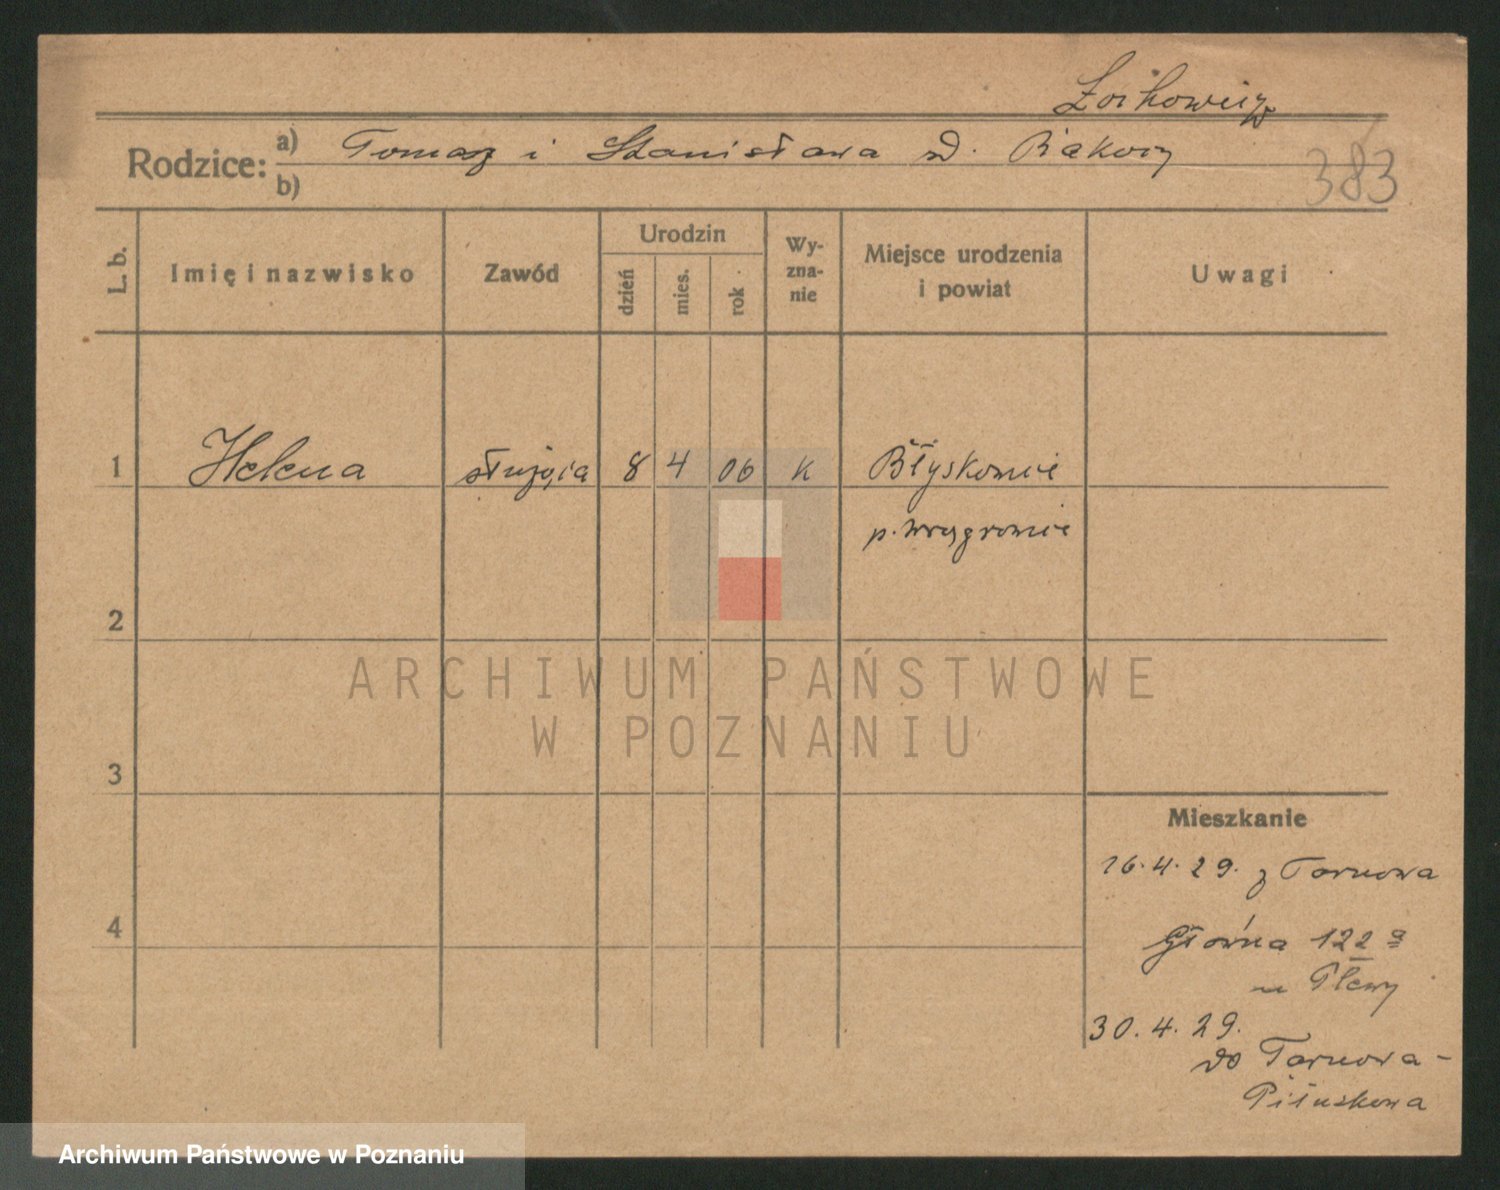 Rodzice:
a) Tomasz i Stanisława d. Rakowy
b)
383
L. b.
Imię i nazwisko
Zawód
Urodzin
dzień
mies.
rok
Wy-
zna-
nie
Miejsce urodzenia
i powiat
Uwagi
1 Helena służąca 8 4 06 K
2
3
4
Mieszkanie
16.4.29. z Tarnowa
Główna 122 a
u Plewy
30.4.29.
do Tarnowa -
ARCHIWUM PAŃSTWOWE
W POZNANIU
Archiwum Państwowe w Poznaniu